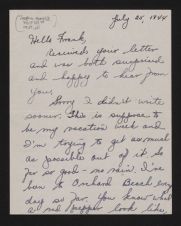 July 25, 1944
Hello Frank,
Received your letter
and was both surprised
and happy to hear from
you.
Sorry I didn't write
sooner. This is suppose to
be my vacation week and
I'm trying to get as much
as possible out of it. So
far so good - no rain. I've
been to Orchard Beach every
day so far. You know what
a red pepper looks like,